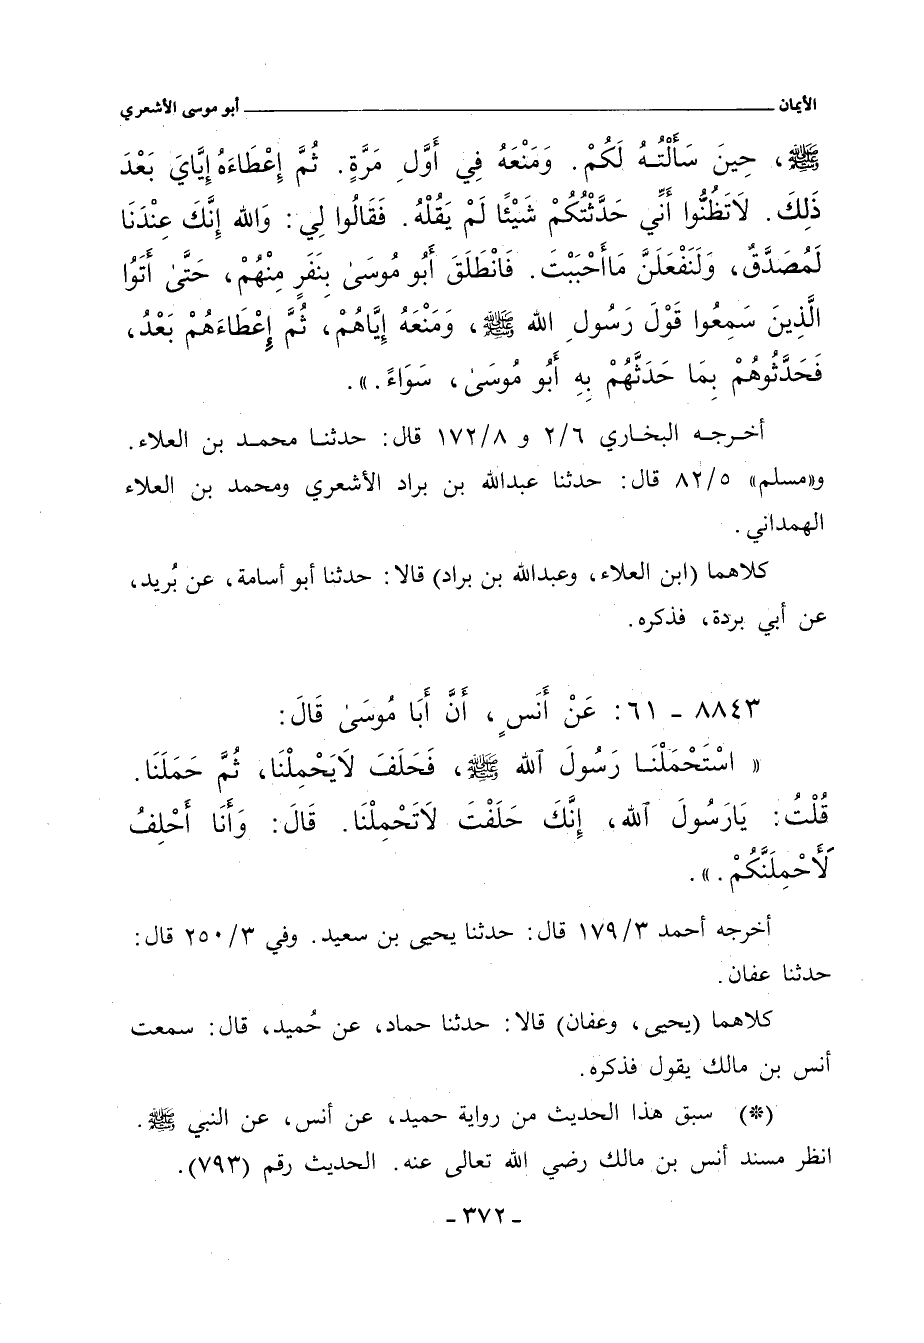 الأيمان ـــــــــ أبو موسى الأشعري
ﷺ، حِينَ سَأَلْتُهُ لَكُمْ. وَمَنْعَهُ فِي أَوَّلِ مَرَّةٍ. ثُمَّ إِعْطَاءَهُ إِيَّايَ بَعْدَ
ذَلِكَ. لَاتَظُنُّوا أَنِّي حَدَّثْتُكُمْ شَيْئًا لَمْ يَقُلْهُ. فَقَالُوا لِي: وَالله إِنَّكَ عِنْدَنَا
لَمُصَدَّقٌ، وَلَنَفْعَلَنَّ مَاأَحْبَبْتَ. فَانْطَلَقَ أَبُو مُوسَىٰ بِنَفَرٍ مِنْهُمْ، حَتَّىٰ أَتَوُا
الَّذِينَ سَمِعُوا قَوْلَ رَسُولِ الله ﷺ، وَمَنْعَهُ إِيَّاهُمْ، ثُمَّ إِعْطَاءَهُمْ بَعْدُ،
فَحَدَّثُوهُمْ بِمَا حَدَّثَهُمْ بِهِ أَبُو مُوسَىٰ، سَوَاءً.».
أخرجه البخاري ٢/٦ و ١٧٢/٨ قال: حدثنا محمد بن العلاء.
و«مسلم» ٨٢/٥ قال: حدثنا عبدالله بن براد الأشعري ومحمد بن العلاء
الهمداني.
كلاهما (ابن العلاء، وعبدالله بن براد) قالا: حدثنا أبو أسامة، عن بُريد،
عن أبي بردة، فذكره.
٨٨٤٣ - ٦١: عَنْ أَنَسٍ، أَنَّ أَبَا مُوسَىٰ قَالَ:
« اسْتَحْمَلْنَا رَسُولَ ٱلله ﷺ، فَحَلَفَ لَايَحْمِلْنَا، ثُمَّ حَمَلَنَا.
قُلْتُ: يَارَسُولَ ٱلله، إِنَّكَ حَلَفْتَ لَاتَحْمِلْنَا. قَالَ: وَأَنَا أَحْلِفُ
لَأَحْمِلَنَّكُمْ.».
أخرجه أحمد ١٧٩/٣ قال: حدثنا يحيى بن سعيد. وفي ٢٥٠/٣ قال:
حدثنا عفان.
كلاهما (يحيى، وعفان) قالا: حدثنا حماد، عن حُميد، قال: سمعت
أنس بن مالك يقول فذكره.
(*) سبق هذا الحديث من رواية حميد، عن أنس، عن النبي ﷺ.
انظر مسند أنس بن مالك رضي الله تعالى عنه. الحديث رقم (٧٩٣).
- ٣٧٢ -